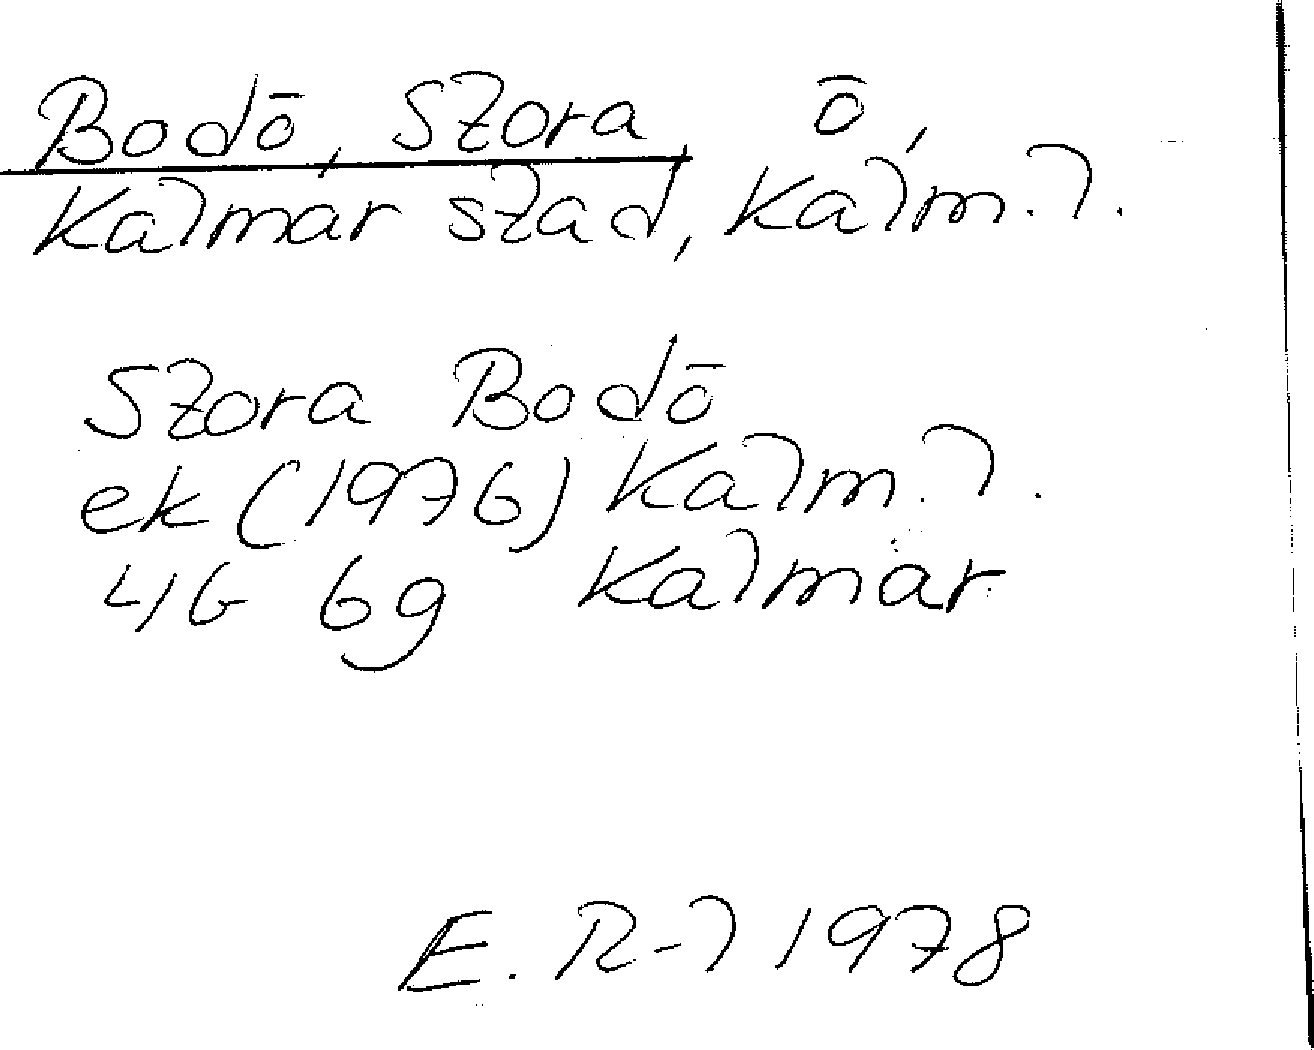 Bodö, Stora, ö,
Kalmar stad, Kalm. l.
Stora Bodö
ek (1976) Kalm. l.
4G 6g Kalmar
E. R-l 1978